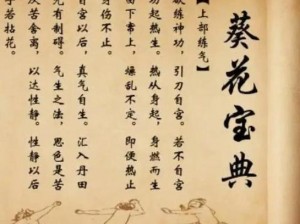 葵花宝典
【上部练气】
欲练神功、引刀自宫。若不自宫
功起热生。热从身起、身燃而生
下窜上、燥乱不定。即便热止
身伤不止。
自宫以后、真气自生。汇入丹田
无有制碍。气生之法、思色是苦
苦舍离、以达性静。性静以后
手若拈花。